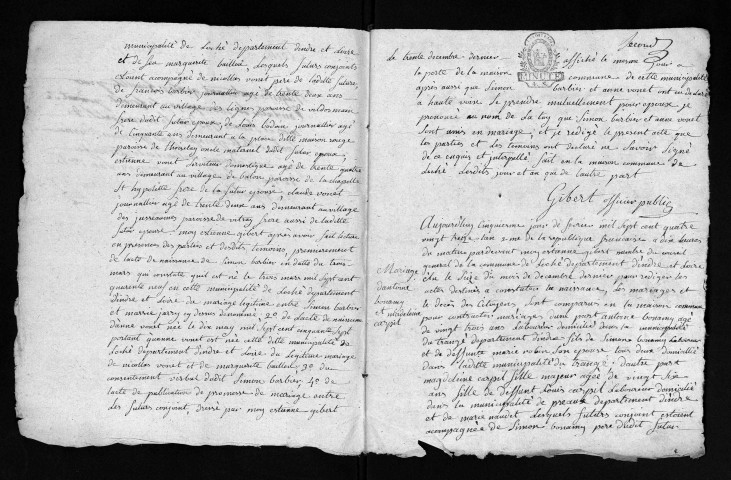 municipalité de Loché département dindre et Loire
et de feu marguerite bailleul Lesquels futurs conjoints
étoient acompagné de nicollas vonet pere de ladite future
de francois barbier journallier agé de trente deux ans
demeurant au village des paroisse de
frere dudit futur epoux, de Louis bodain journallier agé
de Cinquante ans demeurant a la place ditte maison rouge
paroisse de oncle maternel dudit futur epoux;
estienne vonet serviteur domestique agé de trente quatre
ans demeurant au village de paroisse de la chapelle
St hypolitte frere de la future epouse, claude vonet
journallier agé de trente deux ans demeurant au village
des paroisse de vitray frere aussi de laditte
future epouse; moy estienne gibert apres avoir fait lecture
en presence des parties et desdits temoins premierement
de lacte de naissance de Simon barbier en datte du trois
mars qui constate quil est né le trois mars mil sept cent
quarente neuf en cette municipalité de Loché departement
dindre et Loire du mariage legitime entre Simon barbier
et marie jarry cy dessus denommé; 2° de lacte de naissance
danne vonet le dix may mil sept cent cinquante sept
portant quanne vonet est née cette ditte municipalité de
Loché departement dindre et Loire du legitime mariage
de nicollas vonet et de marguerite bailleul 3° du
consentement verbal dudit Simon barbier 4° de
lacte de publication de promesse de mariage entre
les futurs conjoint, dressé par moy estienne gibert
Second
le trente decembre dernier affiché le meme jour a
la porte de la maison commune de cette municipalité
apres aussi que Simon barbier et anne vonet ont eu declaré
a haute voix se prendre mutuellement pour epoux, je
prononcé au nom de La loy que Simon barbier et anne vonet
sont unis en mariage; et je redigé le present acte que
les parties et les temoins ont declaré ne Savoir Signé
de ce enquis et interpellé fait en la maison commune de
Loché Lesdits jour et an que de lautre part
Gibert officier public
Aujourdhuy Cinquieme jour de fevrier mil sept cent quatre
vingt treize lan 2 me de la republique francaise a dix heures
du matin pardevant moy estienne gibert membre du conseil
general de la commune de Loché departement dindre et Loire
élu le dix du mois de decembre dernier pour rediger les
actes destinés a constater la naissance, les mariages et
le decès des Citoyens, sont comparus en la maison commune
pour contracter mariage dune part antoine bonamy agé
de vingt trois ans Laboureur domicilié dans la municipalité
du tranzé departement dindre fils de Simon bonamy laboureur
et de deffunte marie robin son epouse tous deux domicilié
dans laditte municipalité du tranzé: dautre part
magdelaine carpil fille majeur agée de vingt six
ans fille de deffunt Louis carpil Laboureur domicilié
dans la municipalité de preaux departement dindre
et de marie naudet Lesquels futurs conjoint etoient
acompagnée de Simon bonamy pere dudit futur
Mariage
dantoine
bonamy
et magdelaine
carpil